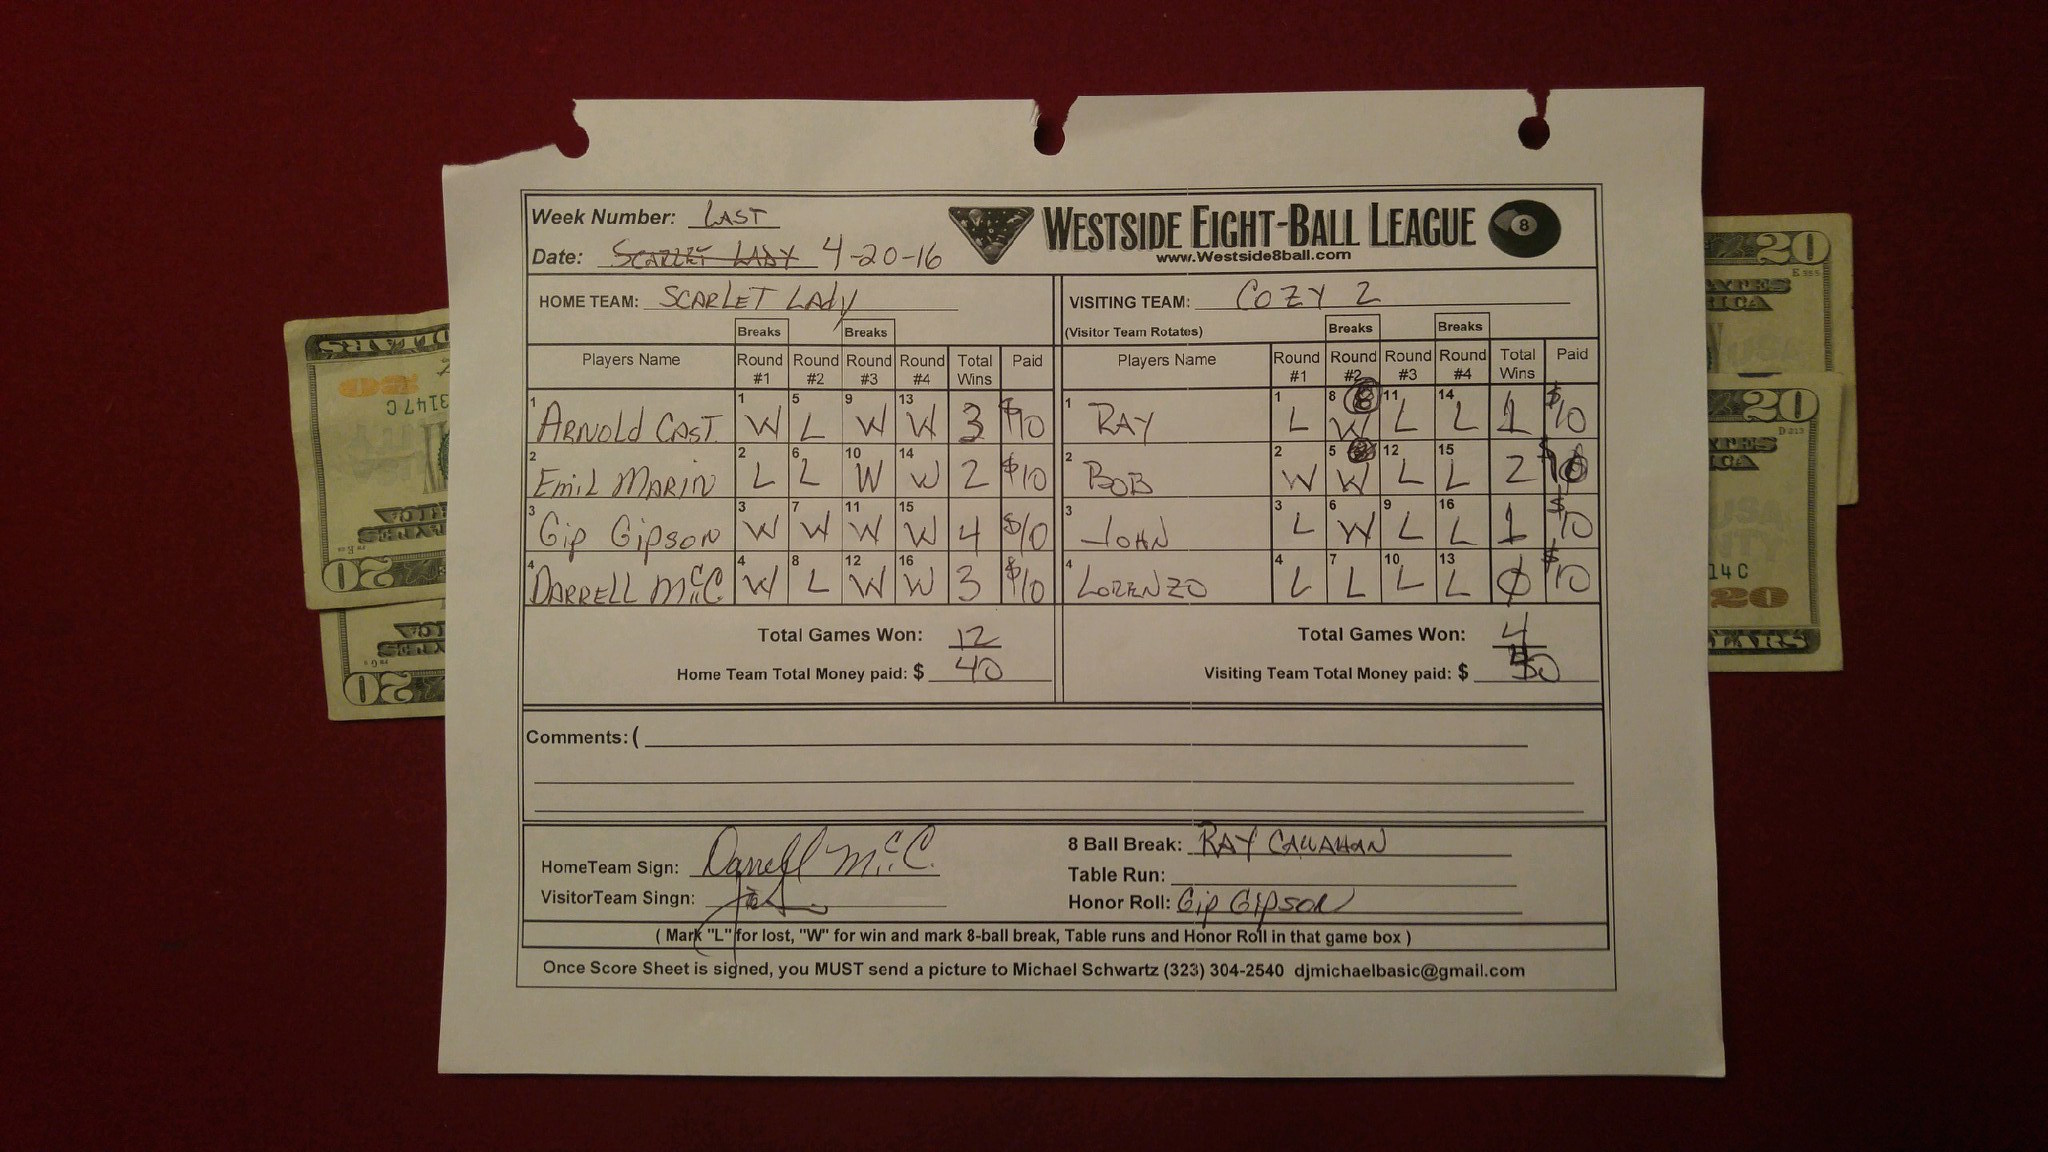 Week Number: LAST
WESTSIDE EIGHT-BALL LEAGUE 8
Date: SCARLET LADY 4-20-16
www.Westside8ball.com
HOME TEAM: SCARLET LADY
VISITING TEAM: COZY 2
Breaks Breaks
(Visitor Team Rotates) Breaks Breaks
Players Name Round #1 Round #2 Round #3 Round #4 Total Wins Paid
1 ARNOLD CAST. 1 W 5 L 9 W 13 W 3 $10
2 EMIL MARIN 2 L 6 L 10 W 14 W 2 $10
3 Gip Gipson 3 W 7 W 11 W 15 W 4 $10
4 DARRELL McC 4 W 8 L 12 W 16 W 3 $10
Total Games Won: 12
Home Team Total Money paid: $ 40
Players Name Round #1 Round #2 Round #3 Round #4 Total Wins Paid
1 RAY 1 L 8 W 8 11 L 14 L 1 $10
2 BOB 2 W 5 W 12 L 15 L 2 $10
3 JOHN 3 L 6 W 9 L 16 L 1 $10
4 LORENZO 4 L 7 L 10 L 13 L 0 $10
Total Games Won: 4
Visiting Team Total Money paid: $ 40
Comments: (
HomeTeam Sign: Darrell McC.
VisitorTeam Singn:
8 Ball Break: RAY CALLAHAN
Table Run:
Honor Roll: Gip Gipson
( Mark "L" for lost, "W" for win and mark 8-ball break, Table runs and Honor Roll in that game box )
Once Score Sheet is signed, you MUST send a picture to Michael Schwartz (323) 304-2540 djmichaelbasic@gmail.com
DOLLARS
20
3147 C
20
20
20
20
14 C
20